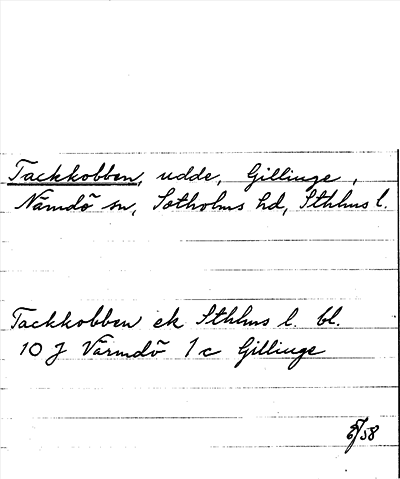 Tackkobben, udde, Gillinge,
Nämdö sn, Sotholms hd, Sthlms l.
Tackkobben ek Sthlms l. bl.
10 J Värmdö 1c Gillinge